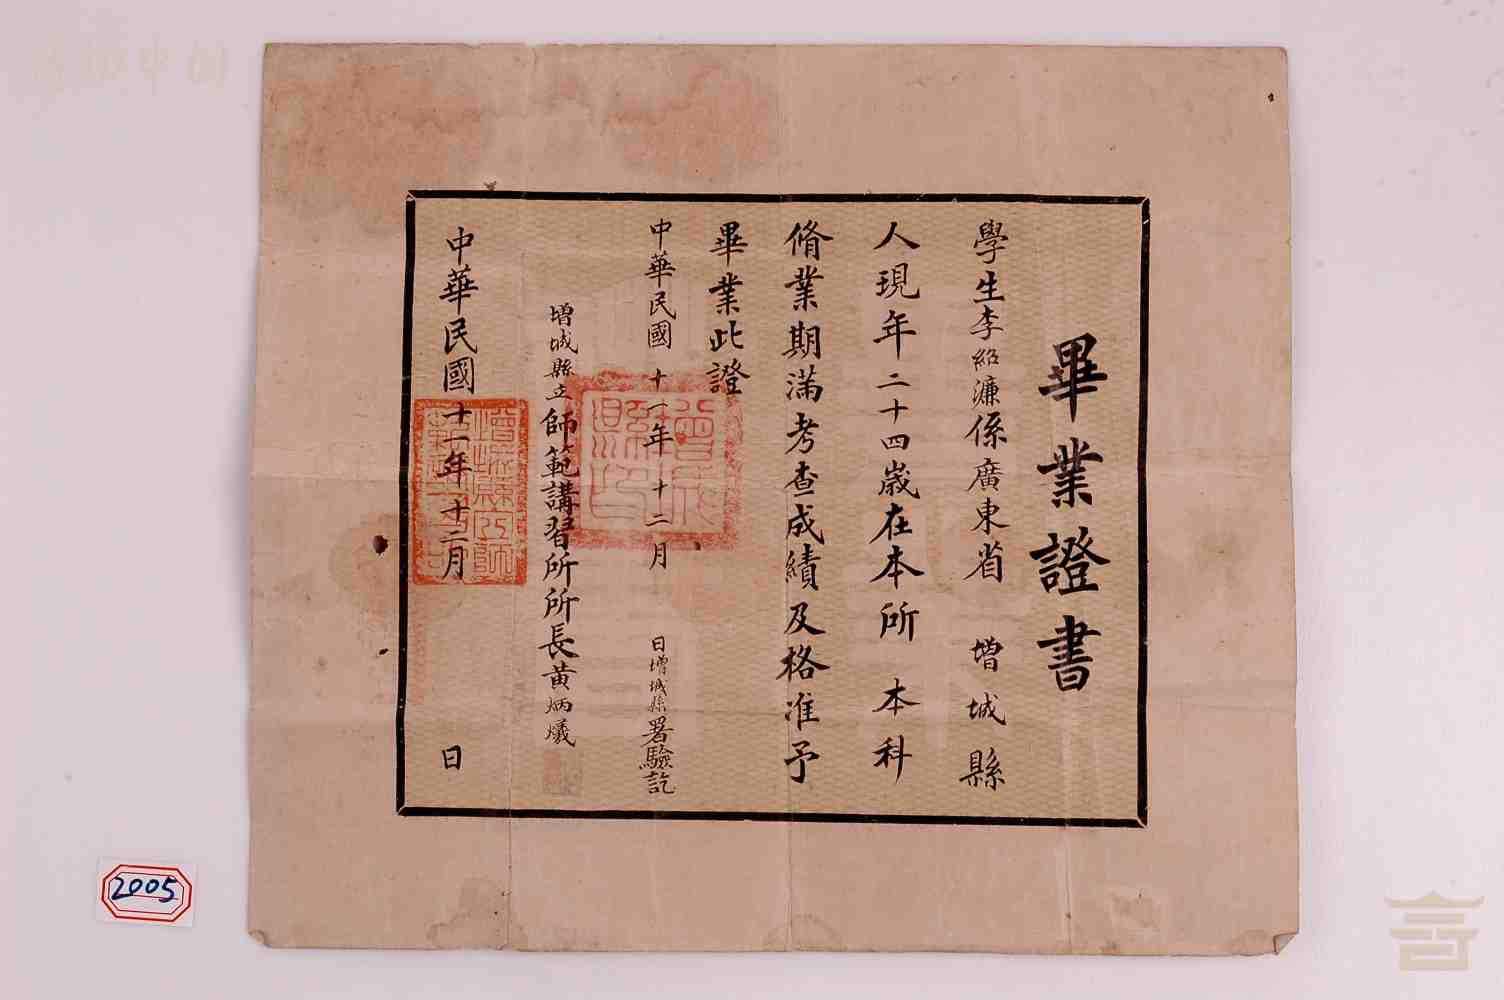 畢業證書
學生李紹濂係廣東省增城縣
人現年二十四嵗在本所本科
脩業期滿考查成績及格准予
畢業此證
中華民國十一年十二月日增城縣署驗訖
增城縣立師範講習所所長黃炳爔
中華民國十一年十二月日
2005